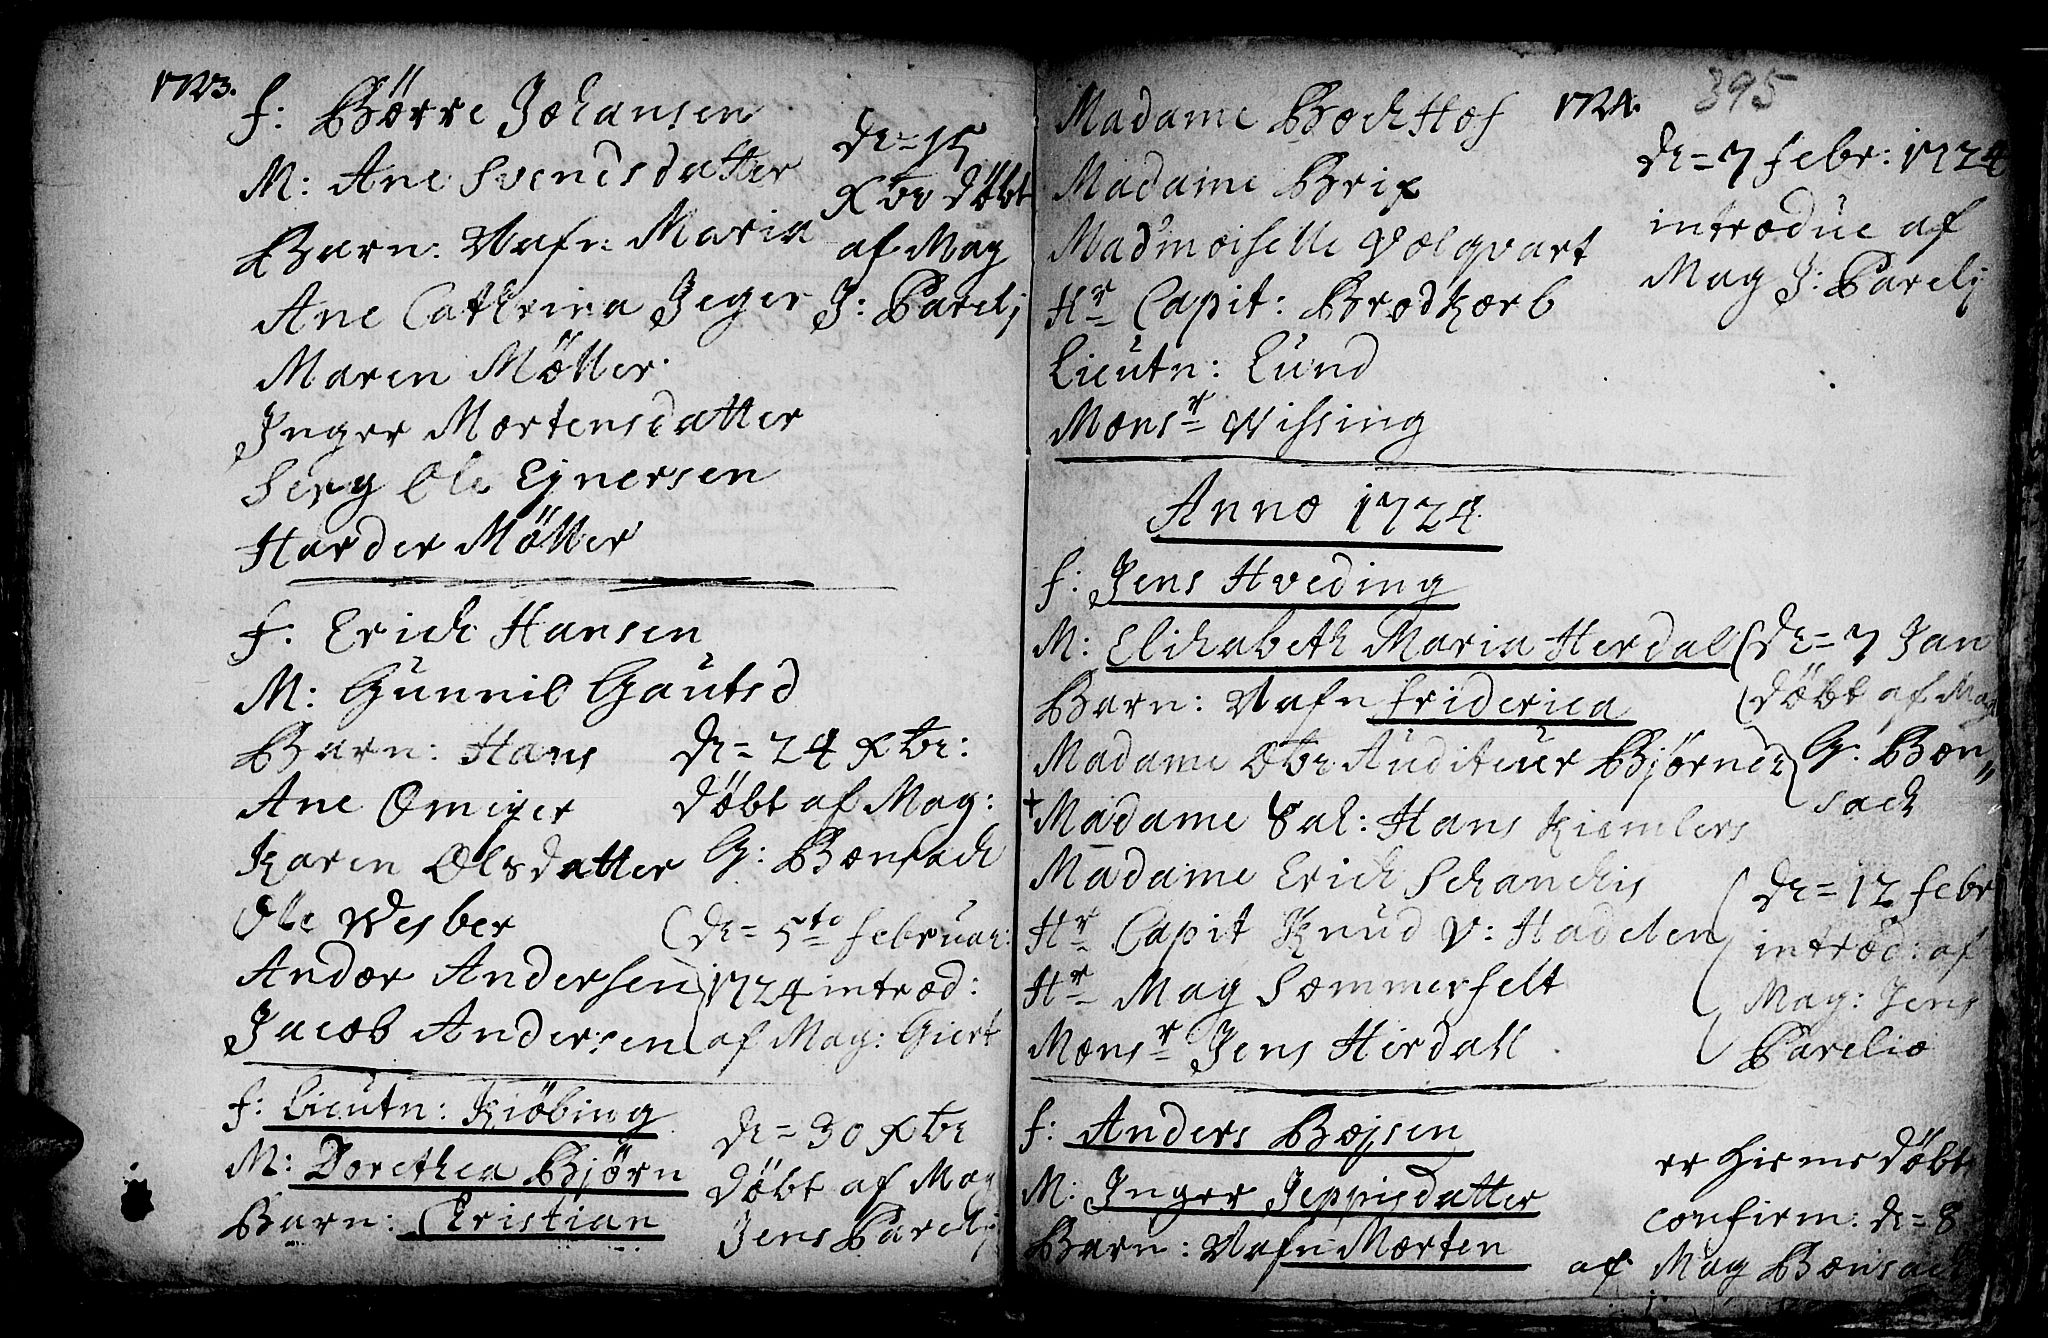 1723.
F: Børre Johansen
M: Ane Svendsdatter
Barn: Nafn: Maria
Ane Cathrina Jeger
Maren Möller.
Inger Mortensdatter
Serg Ole Ejnersen
Harder Möller
d: = 15
Xbr Döbt
af Mag
J: Parelj
F: Erich Hansen
M: Gunnil Gautsd
Barn: Hans
Ane
Karen Olsdatter
Ole Wesber
Andor Andersen
Jacob Andersen
d: = 24 Xbr:
Döbt af Mag:
G: Bonsach
d: = 5to Februar:
1724 introd:
af Mag: Giert
F: Lieutn: Kiöbing
M: Dorethea Bjørn
Barn: Cristian
d: = 30 Xbr
Döbt af Mag
Jens Parelj
1724. 395
Madame Bochhof
Madame Brix
Mad'moiselle Volqvart
Hr Capit: Brodkorb
Lieutn: Lund
Monsr Wissing
d: = 7 Febr: 1724
introdue af
Mag J: Parelj
Anno 1724.
F: Jens Hveding
M: Elisabeth Maria Herdal
Barn: Nafn Friderica
Madame Obr Auditeuer Bjørner
+ Madame Sal: Hans Kiemlers
Madame Erich Schanchis
Hr Capit Knud v: Hadelen
Hr Mag Sommerfelt
Monsr Jens Herdall
d: = 7 Jan
Döbt af Mag
G: Bon„
sach
d: = 12 Febr
introd: af
Mag: Jens
Parelio
F: Anders Bojsen
M: Inger Jeppisdatter
Barn: Nafn Morten
er hiemedöbt
confirm: d: = 8
af Mag Bonsach